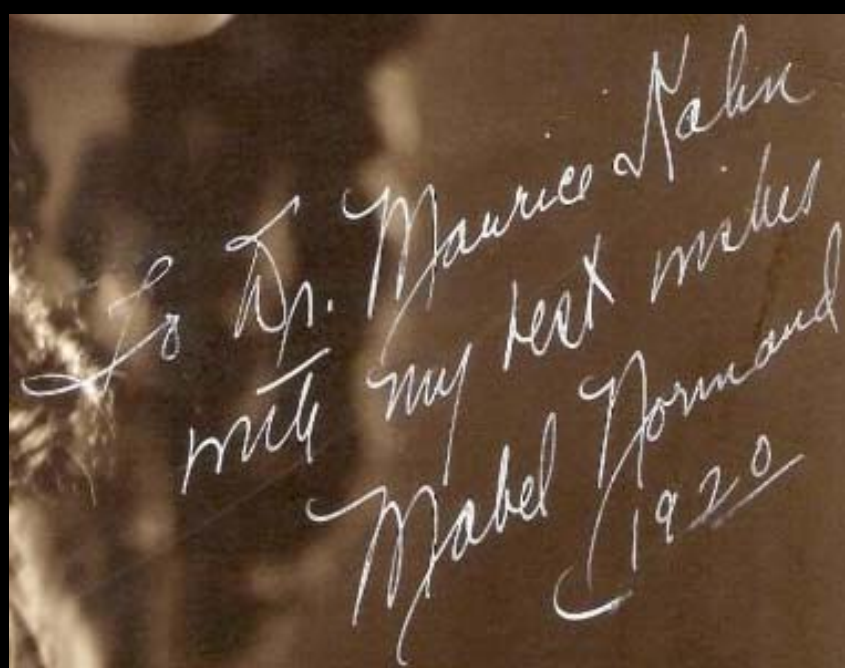 To Dr. Maurice Kahn
with my best wishes
Mabel Normand
1920